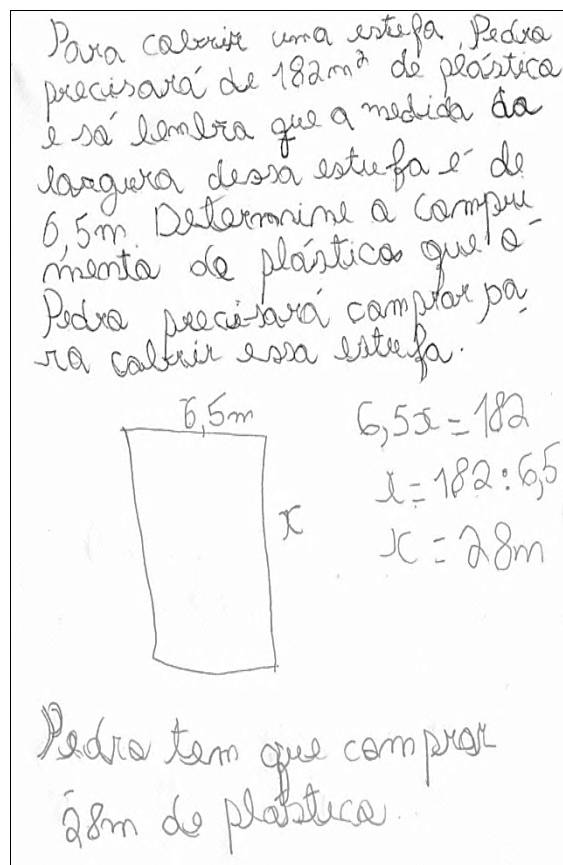 Para cobrir uma estufa, Pedro
precisará de 182m² de plástico
e só lembra que a medida da
largura dessa estufa é de
6,5m. Determine o compri
mento de plástico que o
Pedro precisará comprar pa
ra cobrir essa estufa.
6,5m
x
6,5x = 182
x = 182 : 6,5
x = 28m
Pedro tem que comprar
28m de plástico.